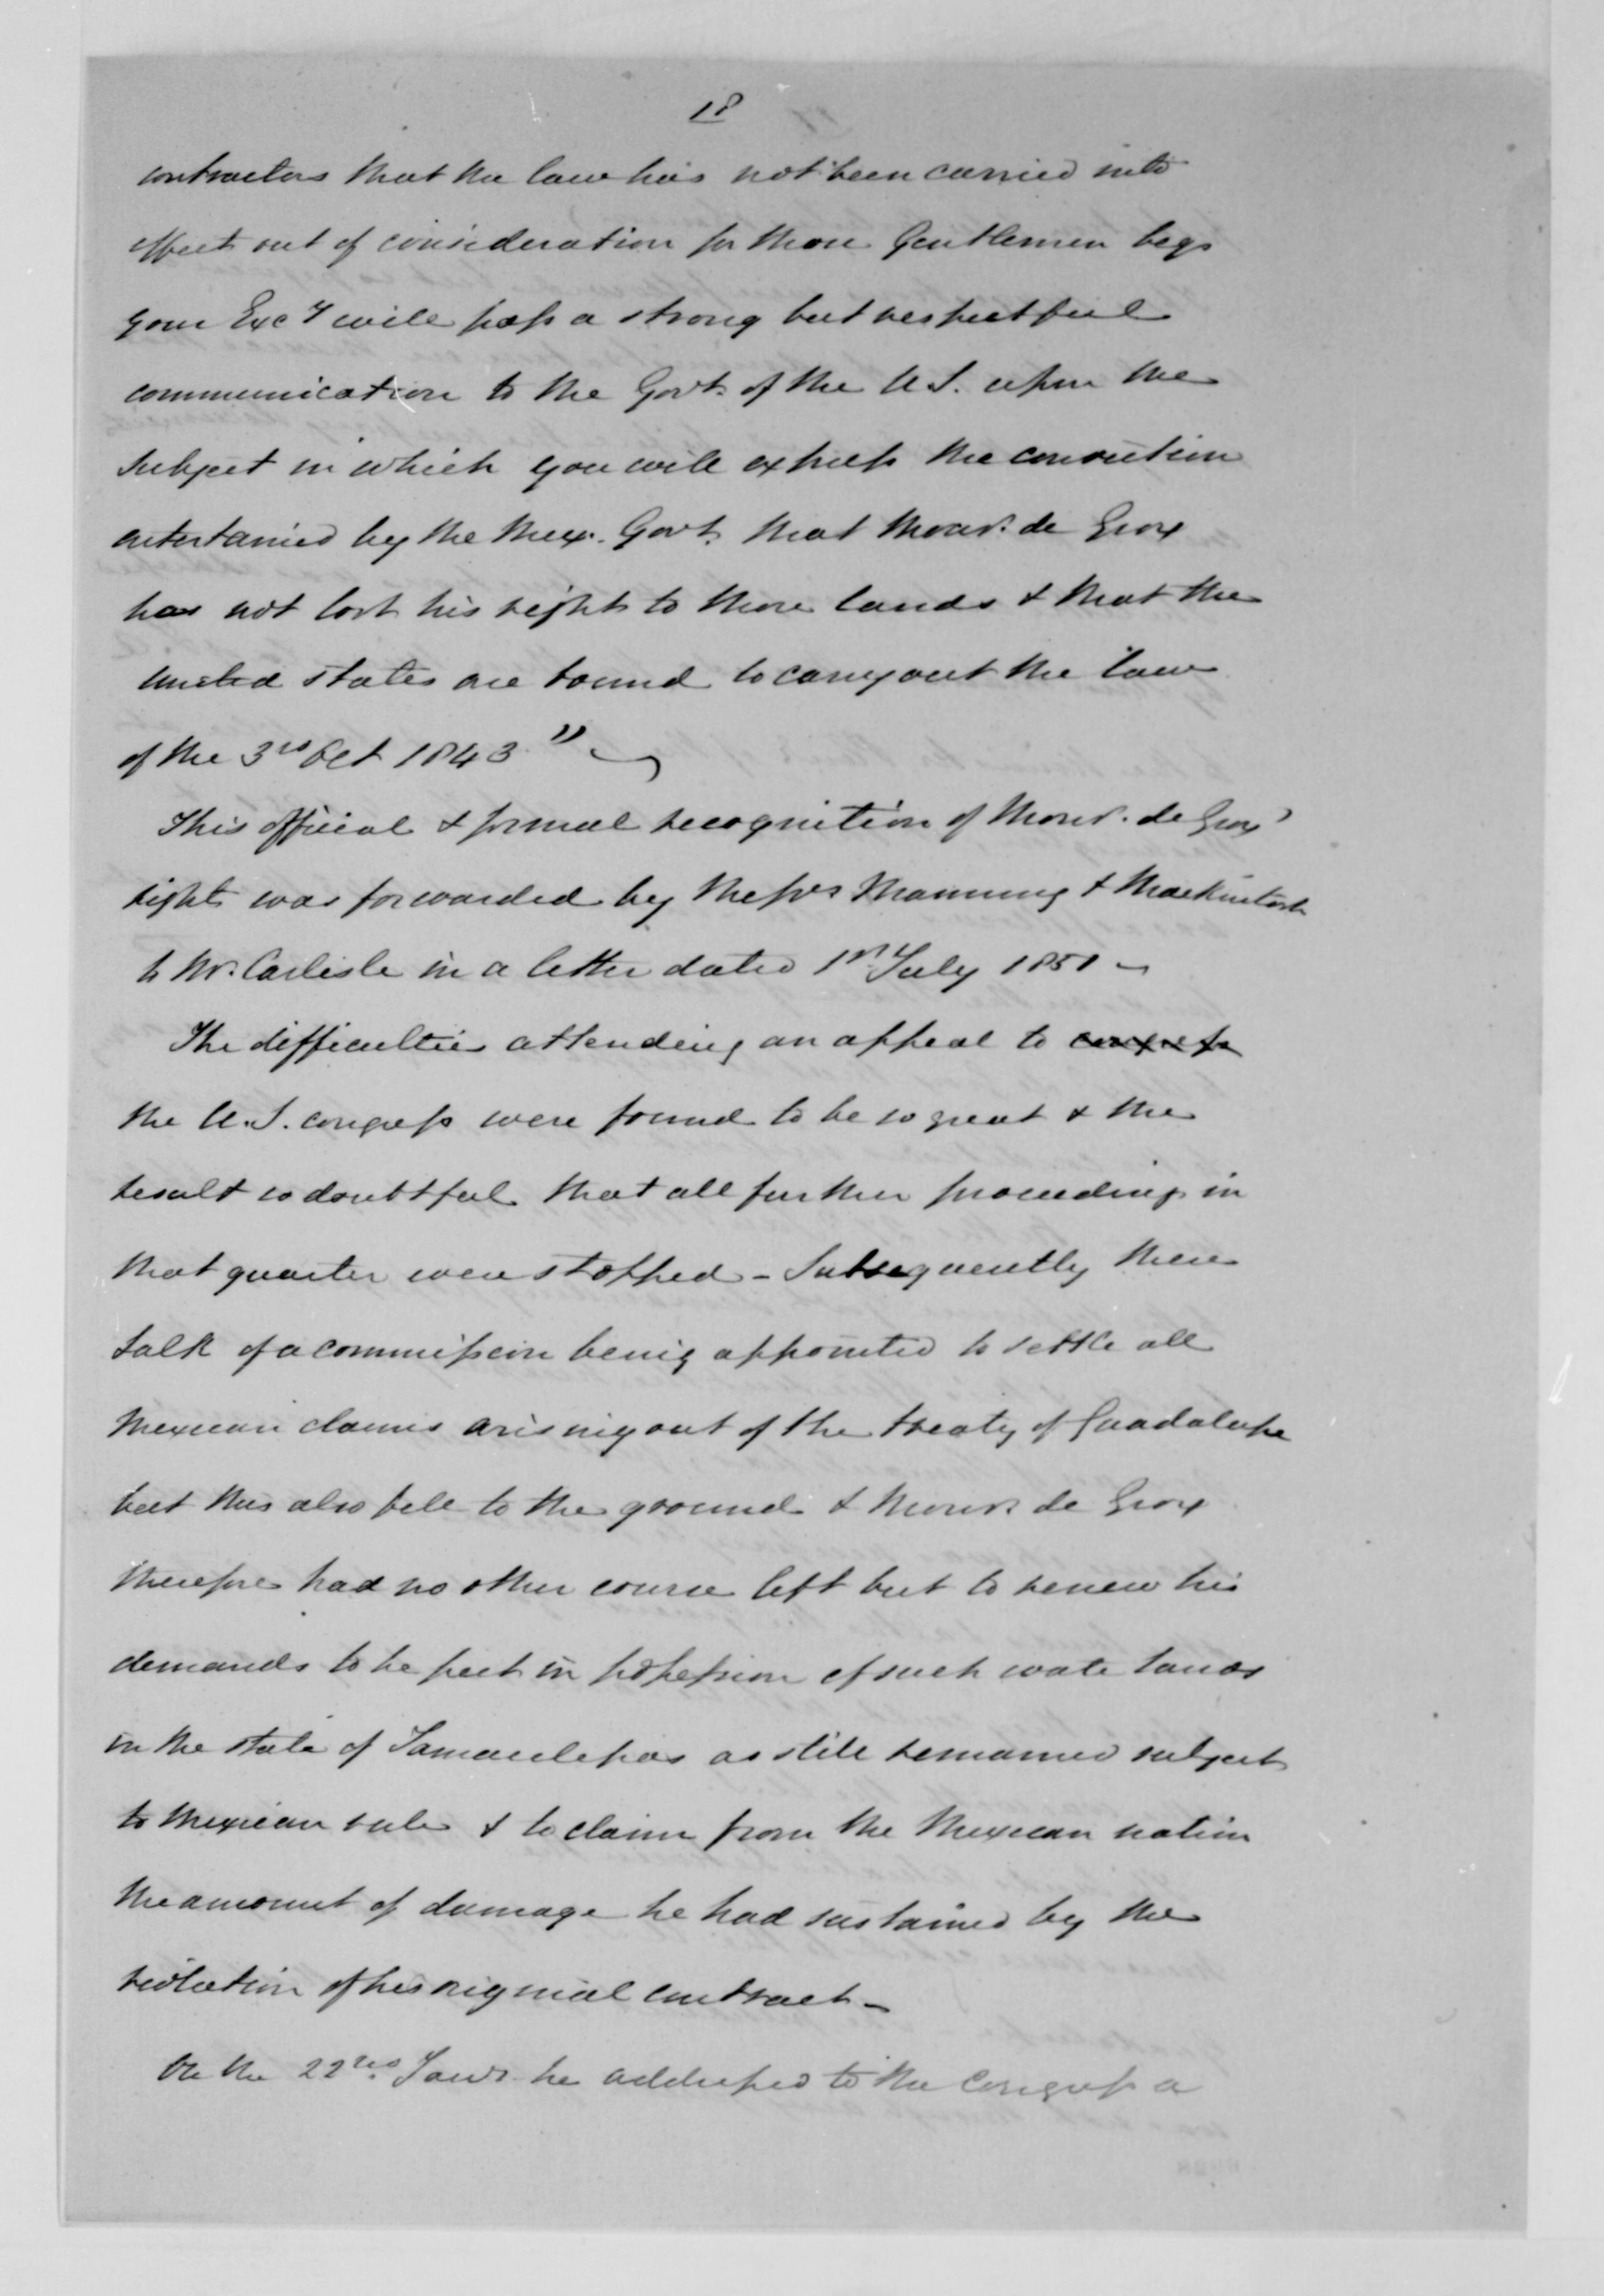 18
contractors that the law has not been carried into
effect out of consideration for those Gentlemen begs
your Excy will pass a strong but respectful
communication to the Govt. of the U.S. upon the
subject in which you will express the conviction
entertained by the Mex. Govt. that Monsr. de Grox
has not lost his right to those lands & that the
United States are bound to carry out the law
of the 3rd Oct 1843"
This official & formal recognition of Monsr. de Grox'
right was forwarded by Messrs Manning & Mackintosh
to Mr. Carlisle in a letter dated 1st July 1851 -
The difficulties attending an appeal to congress
the U.S. congress were found to be so great & the
result so doubtful that all further proceedings in
that quarter were stopped - Subsequently there
talk of a commission being appointed to settle all
Mexican claims arising out of the treaty of Guadalupe
but this also fell to the ground & Monsr. de Grox
therefore had no other course left but to renew his
demands to be put in possession of such waste lands
in the state of Tamaulipas as still remained subject
to Mexican rule & to claim from the Mexican nation
the amount of damage he had sustained by the
violation of his original contract -
On the 22nd. Jany he addressed to the Congress a